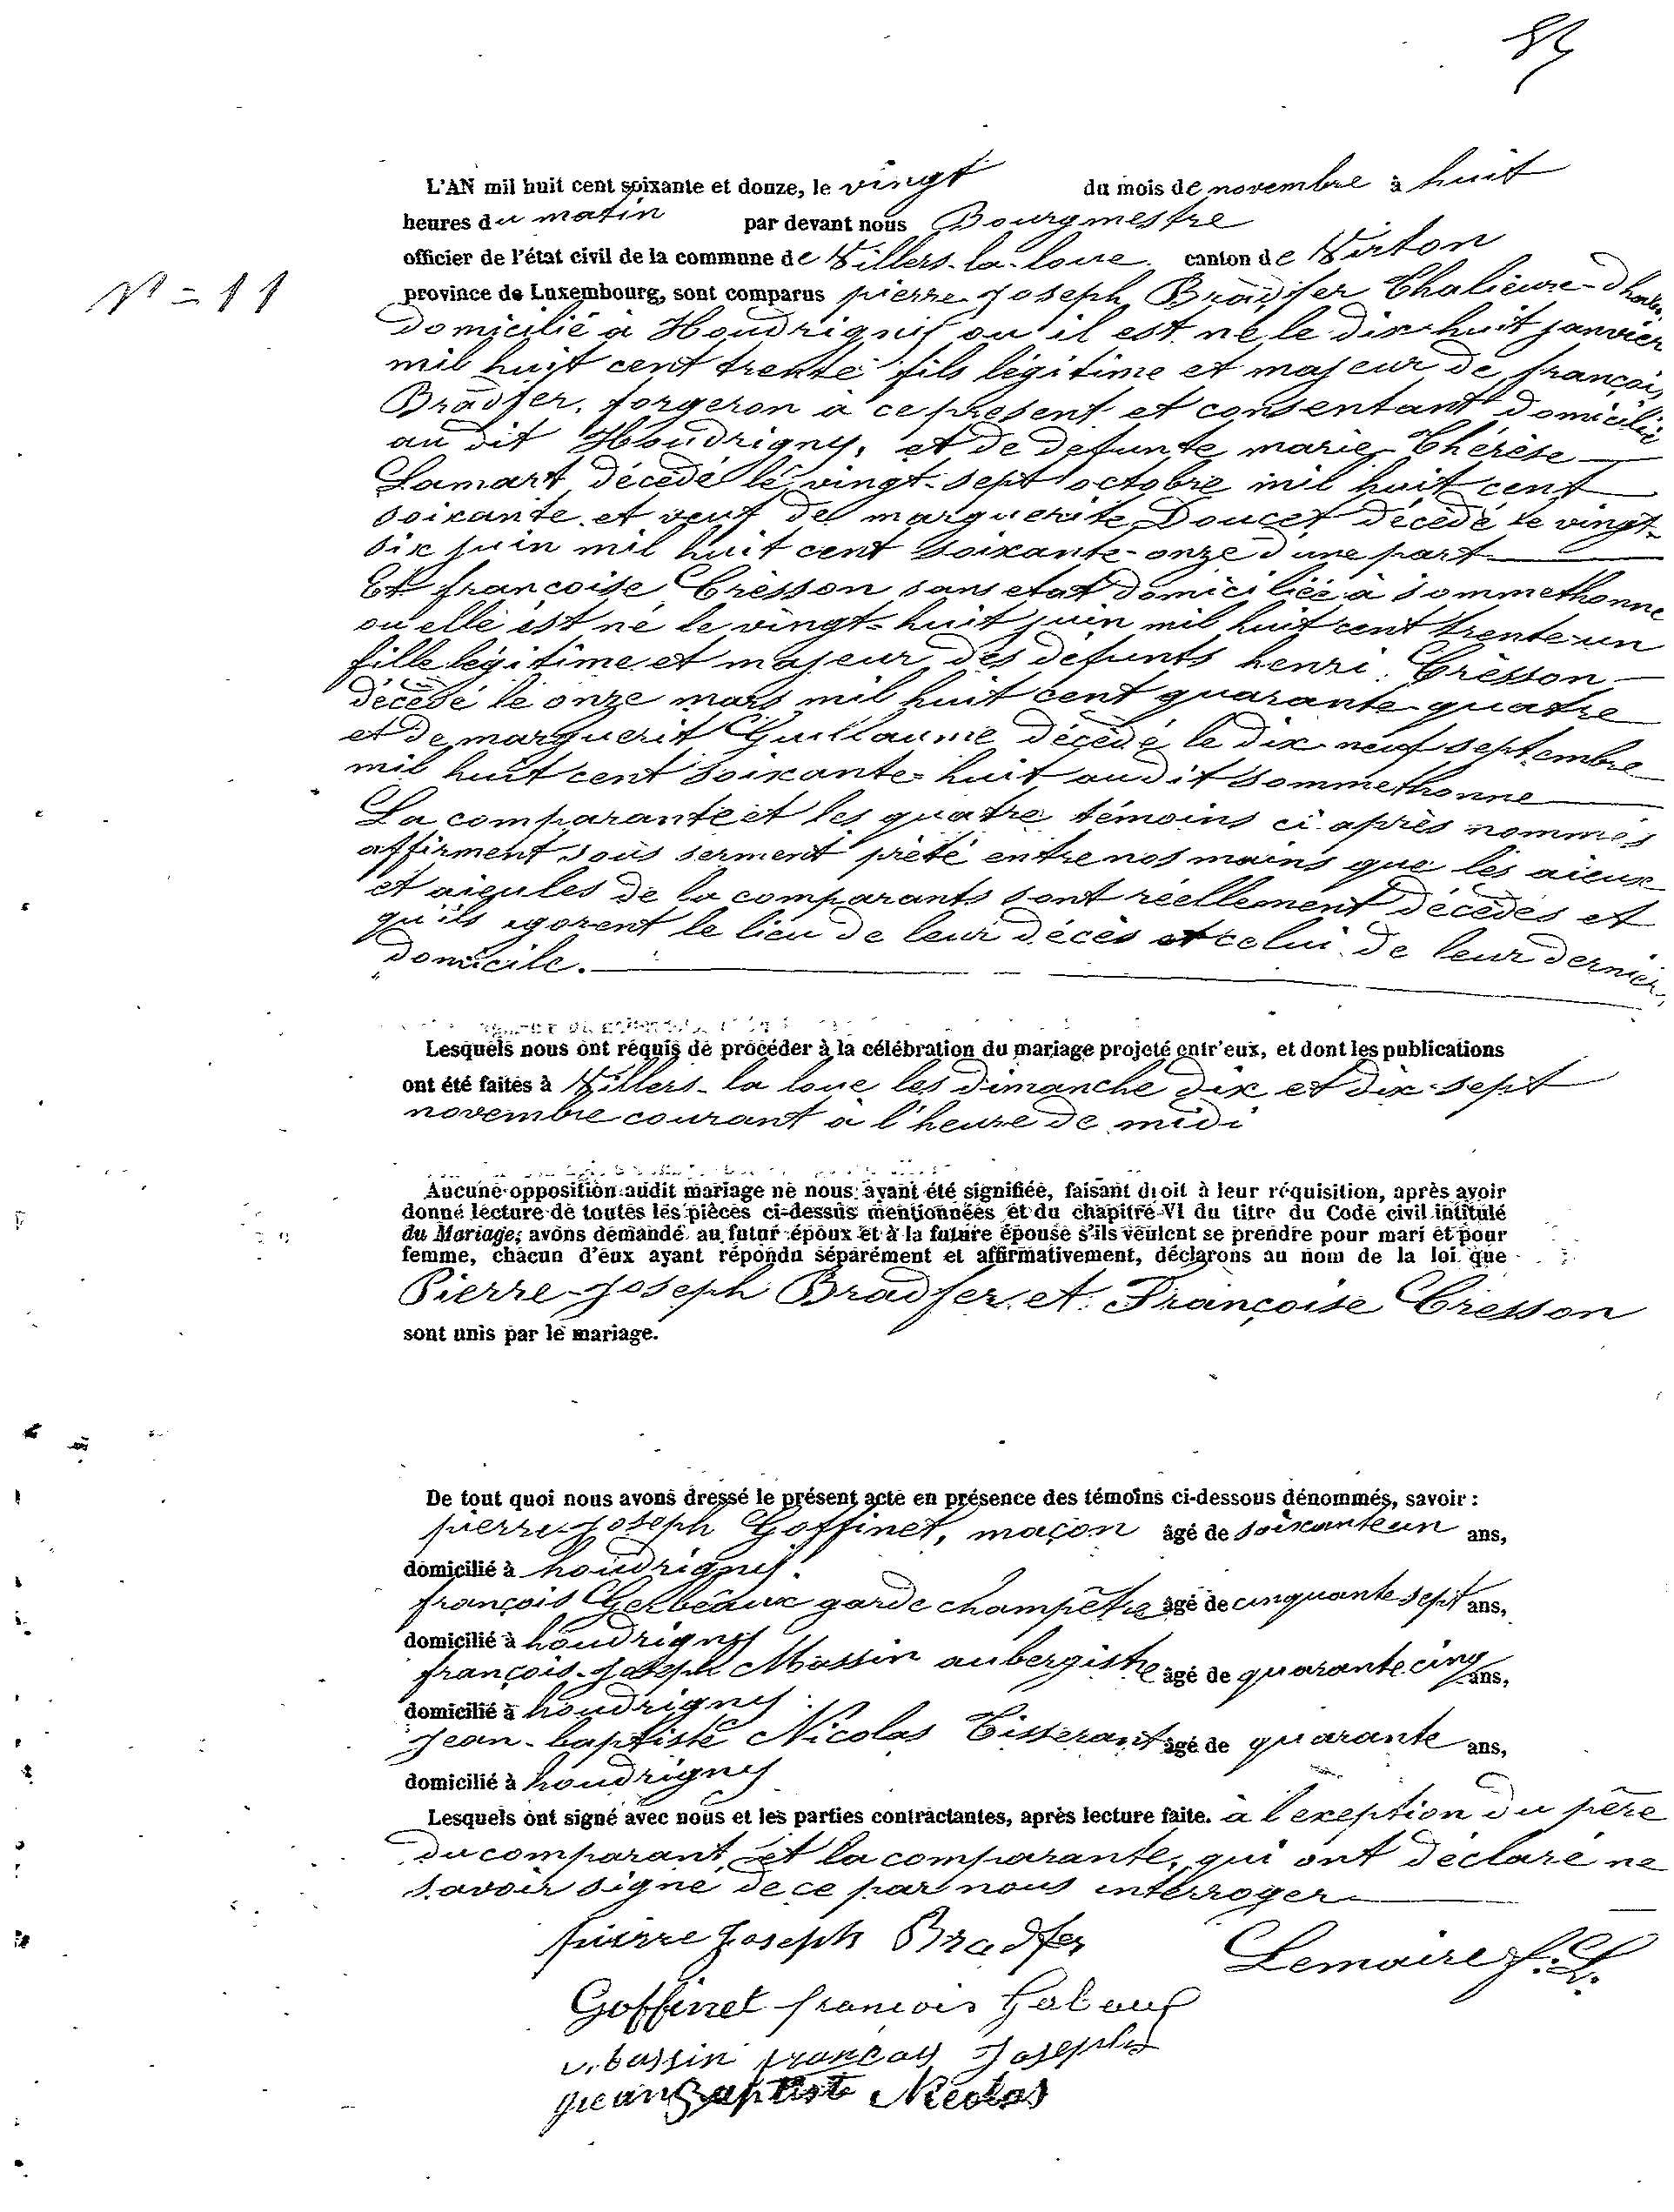 L'AN mil huit cent soixante et douze, le vingt du mois de novembre à huit
heures du matin par devant nous Bourgmestre
officier de l'état civil de la commune de Villers-la-loue canton de Virton
N° = 11
province de Luxembourg, sont comparus pierre-Joseph Bradfer
domicilié à Houdrigny ou il est né le dix huit janvier
mil huit cent trente fils légitime et majeur de françois
Bradfer, forgeron à ce present et consentant domicilié
au dit Houdrigny, et de defunte marie-Thérèse
Lamart décédé le vingt-sept octobre mil huit cent
soixante et veuf de marguerite Doucet décédé le vingt-
six juin mil huit cent soixante-onze d'une part
Et francoise Crèsson sans etat domiciliée à sommethonne
ou elle est né le vingt-huit juin mil huit cent trente-un
fille légitime et majeur des defunts henri Crèsson
décédé le onze mars mil huit cent quarante-quatre
et de marguerit Guillaume décédé le dix-neuf septembre
mil huit cent soixante-huit audit sommethonne
La comparante et les quatre témoins ci-après nommés
affirment sous serment prêté entre nos mains que les aieux
et aieules de la comparants sont réellement décédés et
qu'ils igorent le lieu de leur décès et celui de leur dernier
domicile.
Lesquels nous ont requis de procéder à la célébration du mariage projeté entr'eux, et dont les publications
ont été faites à Villers-la loue les dimanche dix et dix-sept
novembre courant à l'heure de midi
Aucune opposition audit mariage ne nous ayant été signifiée, faisant droit à leur réquisition, après avoir
donné lecture de toutes les pièces ci-dessus mentionnées et du chapitre VI du titre du Code civil intitulé
du Mariage; avons demandé au futur époux et à la future épouse s'ils veulent se prendre pour mari et pour
femme, chacun d'eux ayant répondu séparément et affirmativement, déclarons au nom de la loi que
Pierre-Joseph Bradfer et Françoise Cresson
sont unis par le mariage.
De tout quoi nous avons dressé le présent acte en présence des témoins ci-dessous dénommés, savoir :
pierre-Joseph Goffinet, maçon âgé de soixante un ans,
domicilié à houdrigny.
françois Gerbeaux garde champêtre âgé de cinquante sept ans,
domicilié à houdrigny
françois-Joseph Massin aubergiste âgé de quarante cinq ans,
domicilié à houdrigny.
Jean-baptiste Nicolas Tisserant âgé de quarante ans,
domicilié à houdrigny
Lesquels ont signé avec nous et les parties contractantes, après lecture faite. à l'exeption du père
du comparant et la comparante, qui ont déclaré ne
savoir signé de ce par nous interroger
pierre Joseph Bradfer
Lemaire
Goffinet françois
françois Joseph
jean Baptiste Nicolas